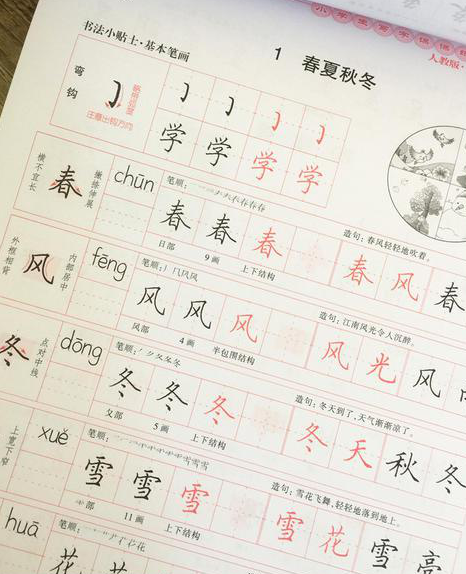 小学生写字课课练
人教版·
书法小贴士·基本笔画
1 春夏秋冬
弯钩
略带弧度
注意出钩方向
学 学 学 学
横不宜长
春
撇捺伸展
chūn
笔顺:
春 春 春
日部 9画 上下结构
造句:春风轻轻地吹着。
春 风 春
外框相背
风
内部居中
fēng
笔顺:
风 风 风
风部 4画 半包围结构
造句:江南风光令人沉醉。
风 光 风
冬
点对中线
dōng
笔顺:
冬 冬 冬
夂部 5画 上下结构
造句:冬天到了,天气渐渐凉了。
冬 天 秋 冬
上宽下窄
xuě
笔顺:
雪 雪 雪
部 11画 上下结构
造句:雪花飞舞,轻轻地落到地上。
雪 花 雪 亮
huā
笔顺:
花 花